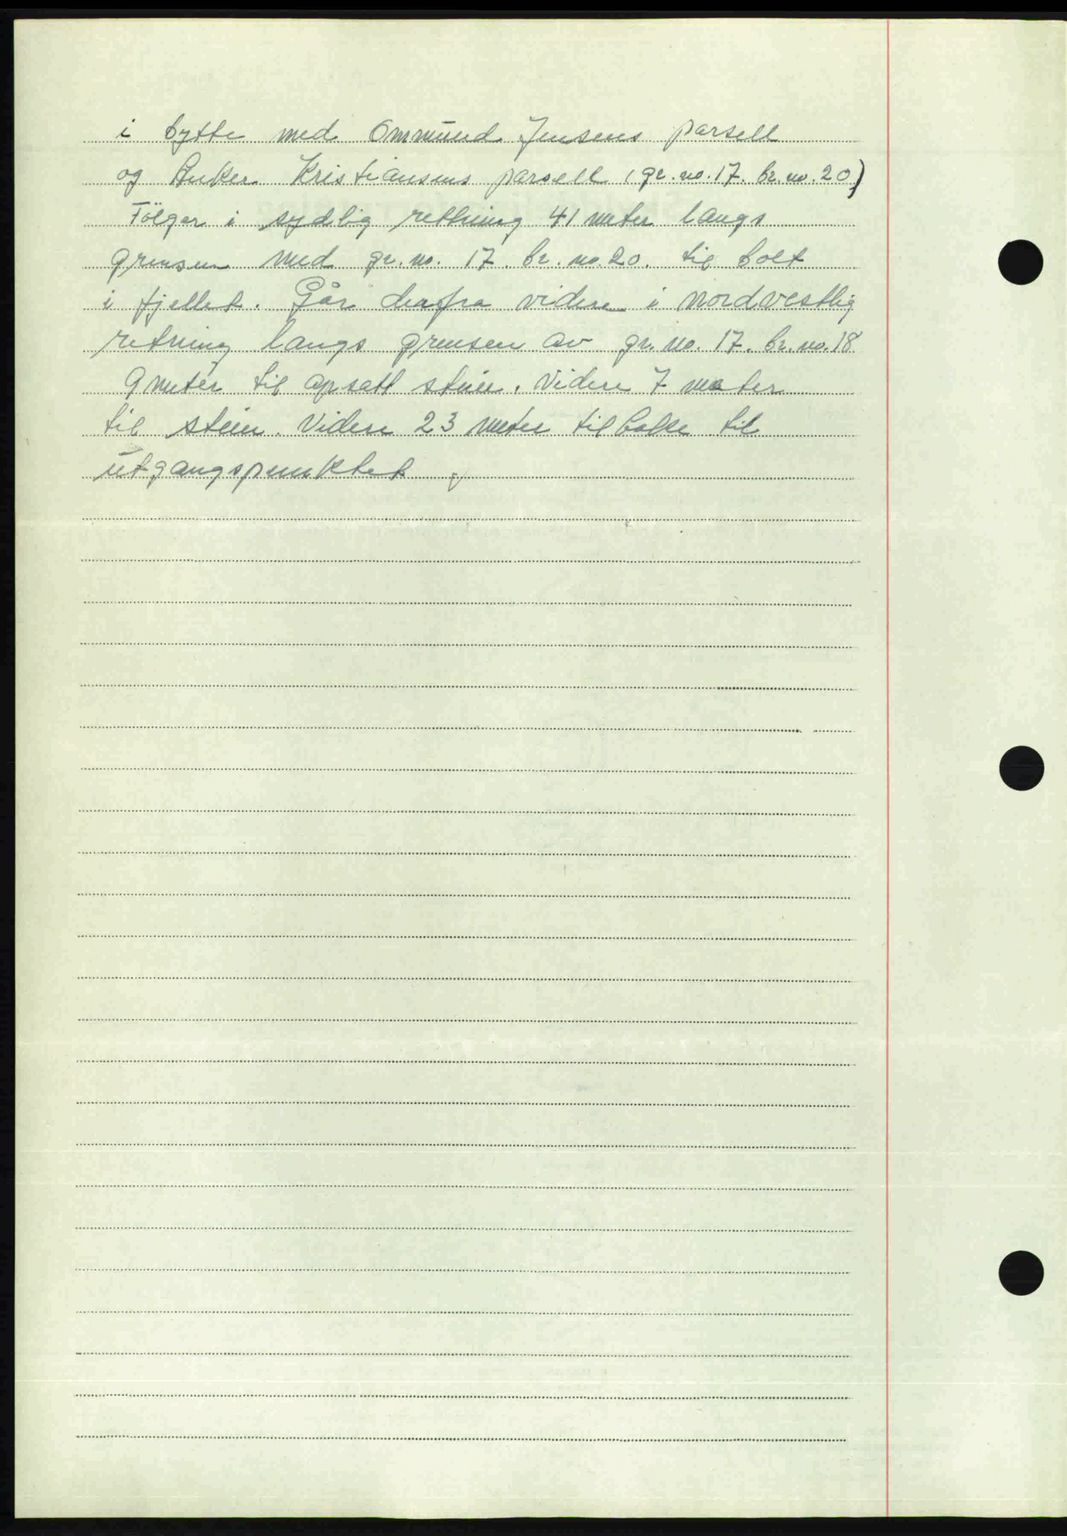 i bytte med Ommund Jensens parsell
og Anker Kristiansens parsell (gr.no.17. br.no.20)
Følger i sydlig rettning 41 meter langs
grensen med gr.no. 17. br.no.20. til bolt
i fjellet. Går derfra videre i nordvestlig
retning langs grensen av gr.no. 17. br.no.18
9 meter til opsatt stein. Videre 7 meter
til stein. Videre 23 meter tilbake til
utgangspunktet